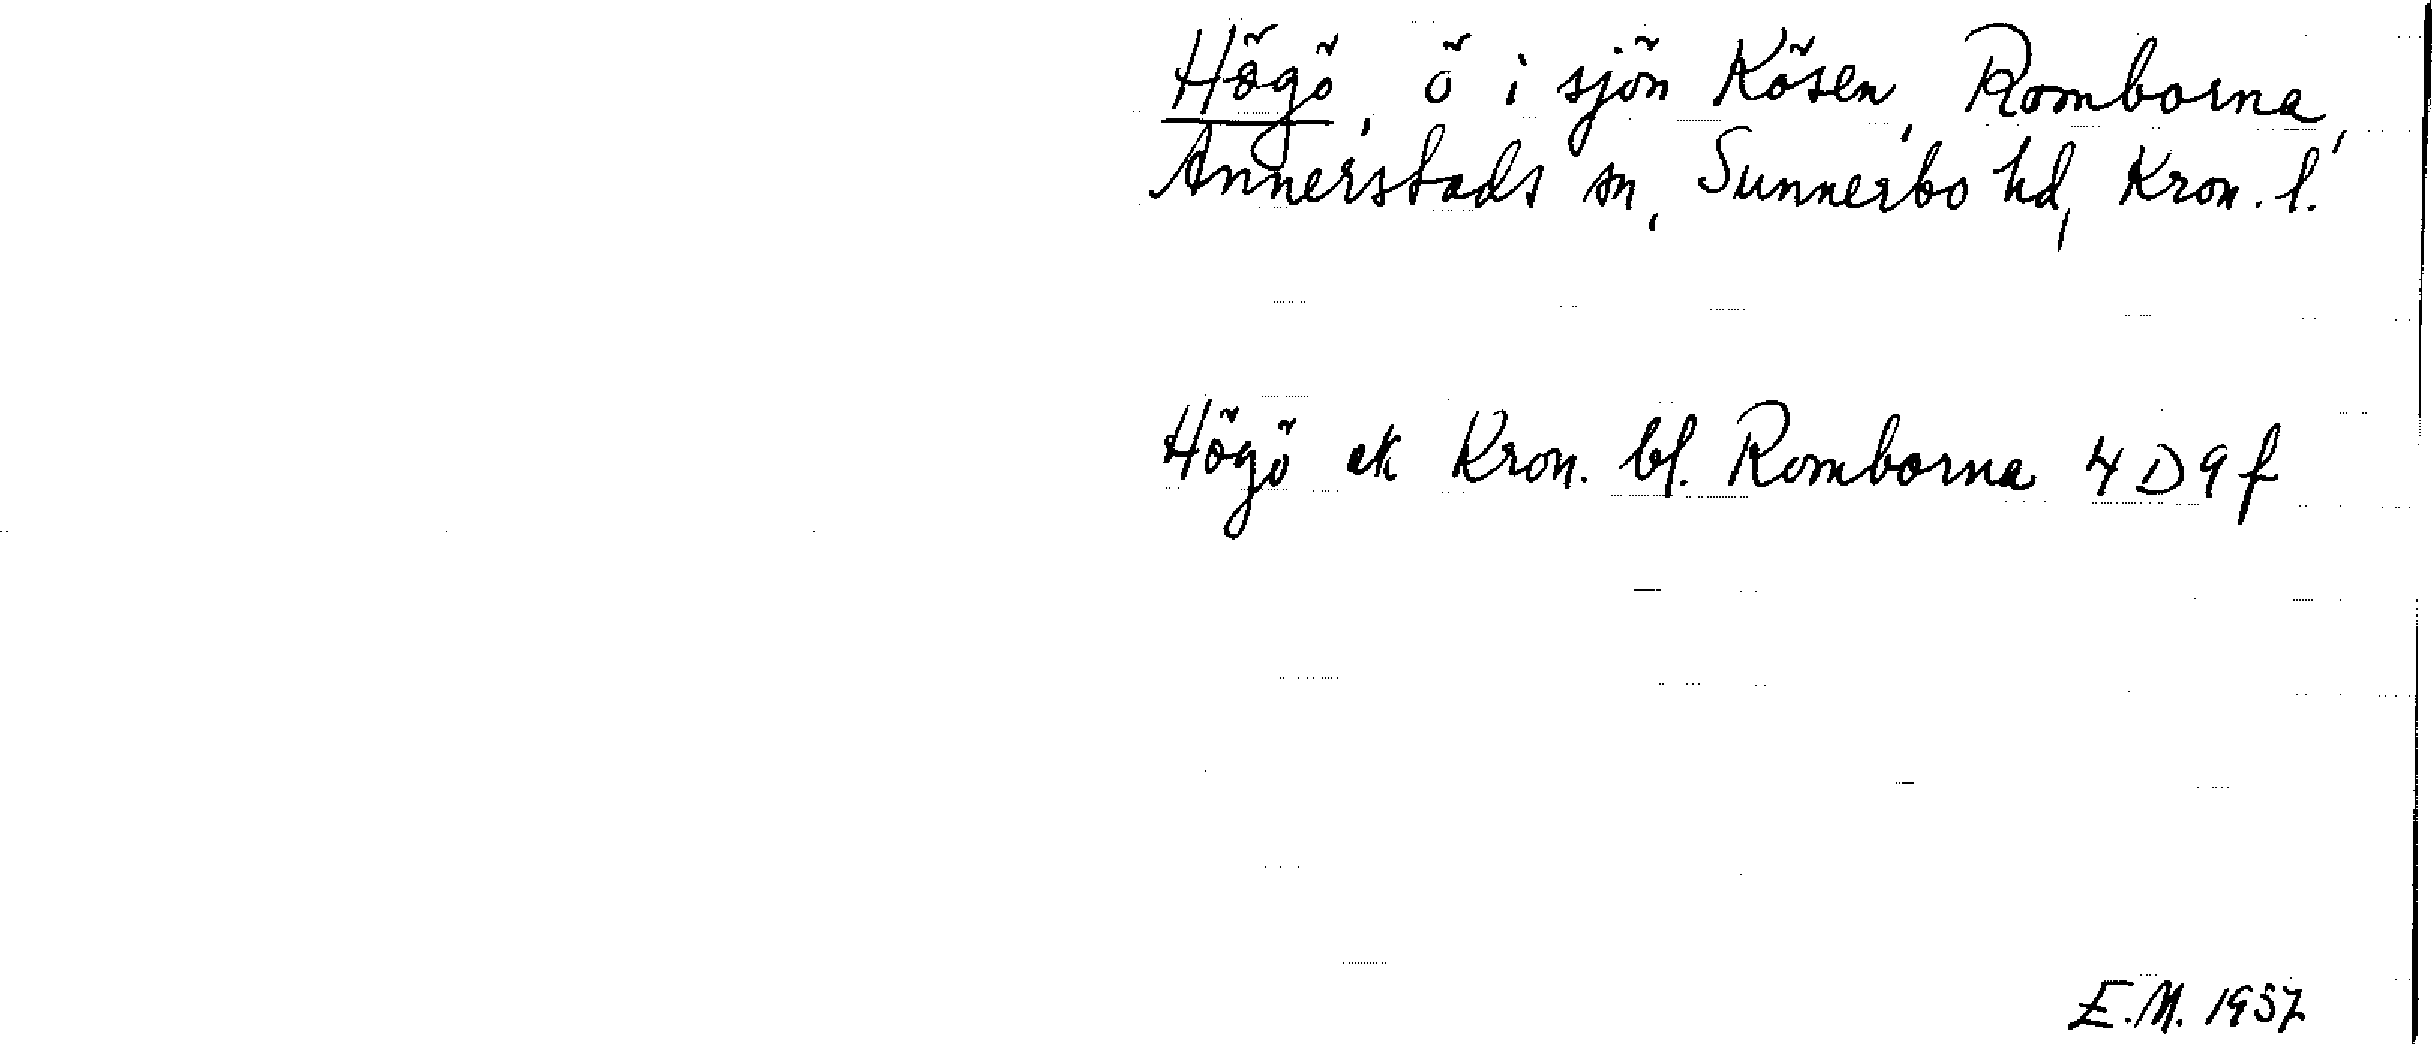 Högö, ö i sjön Kösen, Romborna,
Annerstads sn, Sunnerbo hd, Kron. l.
Högö ek Kron. bl. Romborna 4D9f
E.M. 1957